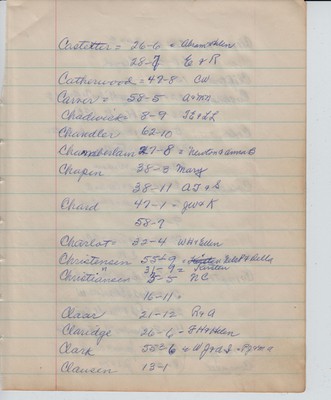 Castetter = 26-6 = Abram & Helen
28-7 E & R
Catherwood = 47-8 CW
Carver = 58-5 A & MD
Chadwick 8-9
Chandler 62-10
Chamberlain 27-8 = Newton & Anna B
Chapin 38-8 Mary
38-11 AJ &
Chard 47-1 - JW & K
58-7
Charlot = 32-4 WH & Eden
Christensen 55-9 & Della
Christiansen 31-9 = Karsten
5-5 NC
16-11 =
Claar 21-12 R & A
Claridge 26-6 - FH & Helen
Clark 58-6 =
Clausen 13-1